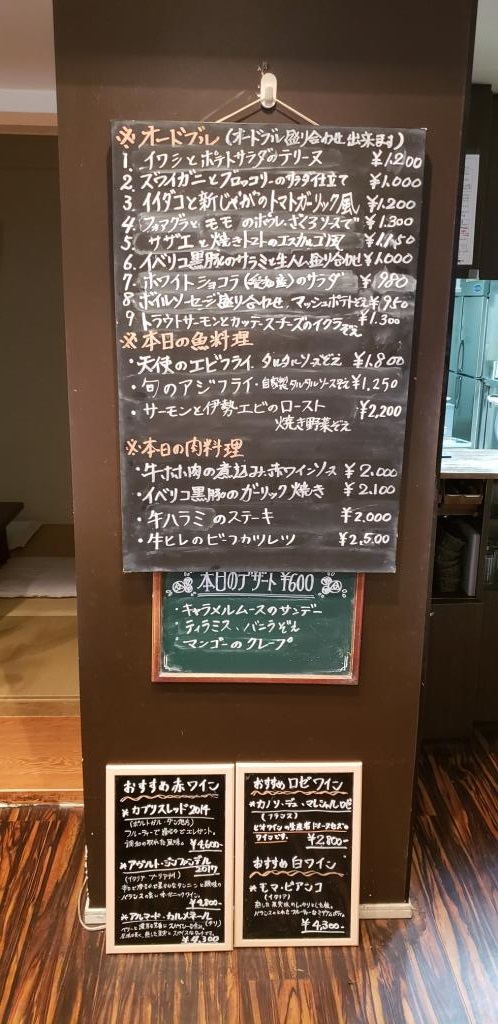 ※オードブル(オードブル盛り合わせ出来ます)
1. イワシとポテトサラダのテリーヌ ¥1.200
2. ズワイガニとブロッコリーのサラダ仕立て ¥1.000
3. イイダコと新じゃがのトマトガーリック風 ¥1.200
4. フォアグラとモモのポワレ ざくろソースで ¥1.300
5. サザエと焼きトマトのエスカルゴ風 ¥1.150
6. イベリコ黒豚のサラミと生ハム盛り合わせ ¥1.000
7. ホワイトショコラのサラダ ¥980
8. ボイルソーセージ盛り合わせ マッシュポテトぞえ ¥950
9. トラウトサーモンとカッテースチーズのイクラぞえ ¥1.300
※本日の魚料理
・天使のエビフライ タルタルソースぞえ ¥1.800
・旬のアジフライ・自家製タルタルソースぞえ ¥1,250
・サーモンと伊勢エビのロースト ¥2,200
焼き野菜ぞえ
※本日の肉料理
・牛ホホ肉の煮込み 赤ワインソース ¥2.000
・イベリコ黒豚のガーリック焼き ¥2.100
・牛ハラミのステーキ ¥2,000
・牛ヒレのビーフカツレツ ¥2,500
本日のデザート ¥600
・キャラメルムースのサンデー
・ティラミス、バニラぞえ
・マンゴーのクレープ
おすすめ赤ワイン
※カブリスレッド2014
¥4600-
2017
¥4,800-
※アルマード・カルメネール
¥4,300
おすすめロゼワイン
(フランス)
ワインです。 ¥2,800-
おすすめ白ワイン
※モマ・ビアンコ
(イタリア)
¥4,300-